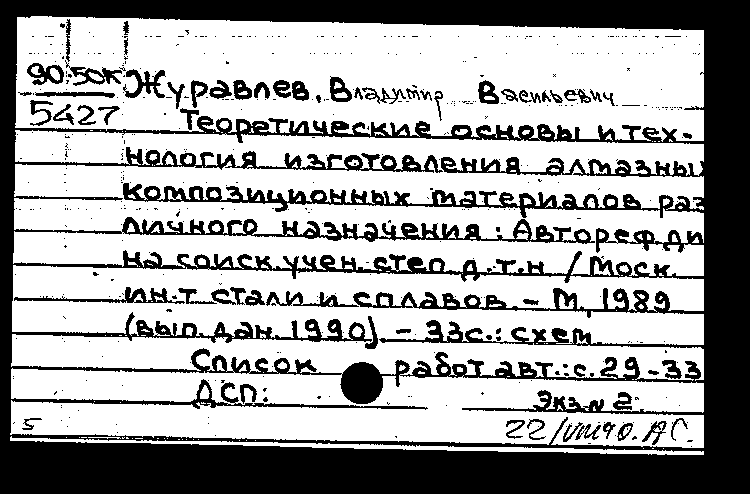 90-50К Журавлев, Владимир Васильевич
5427 Теоретические основы и тех-
нология изготовления алмазны
композиционных материалов раз
личного назначения : Автореф ди
на соиск. учен. степ д.т.н / Моск.
ин.т стали и сплавов. – М, 1989
(вып. дан. 1990). – 33с.: схем
Список работ авт.: с. 29-33
ДСП: Экз. N 2.
5 22/VIII90. АС.